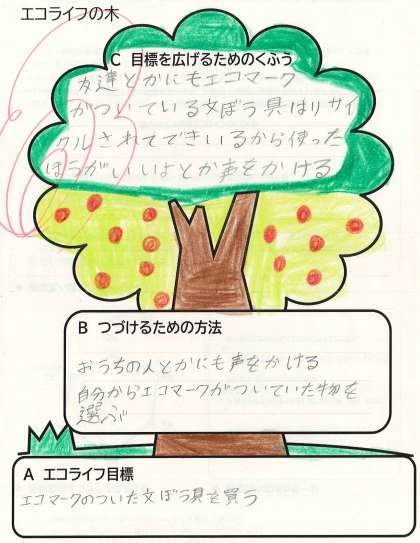 エコライフの木
C 目標を広げるためのくふう
友達とかにもエコマーク
がついている文ぼう具はリサイ
クルされてできいるから使った
ほうがいいよとか声をかける
B つづけるための方法
おうちの人とかにも声をかける
自分からエコマークがついていた物を
選ぶ
A エコライフ目標
エコマークのついた文ぼう具を買う